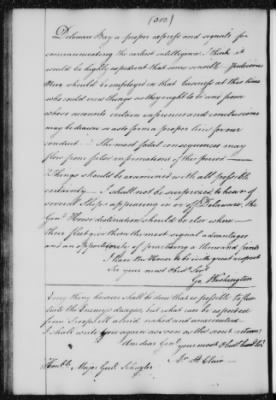 (300)
Delaware Bay a proper express and signals for
communicating the earliest intelligence. I think it
would be highly expedient that some sensible Judicious
Men should be employed in that business at this time
who could view things as they ought to be and from
whose accounts certain inferences and conclusions
may be drawn so as to form a proper line for our
conduct. The most fatal consequences may
flow from false informations at this period —
Things should be examined with all possible
certainty. I shall not be surprized to hear of
several Ships appearing in or off Delaware, tho
Genl. Howes destination should be else where
their fleet give them the most signal advantages
and an opportunity of practicing a thousand feints
I have the Honor to be with great respect
Sir your most Obedt. Servt.
Go Washington
every thing here shall be done that is possible to frus
trate the Enemys designs, but what can be expected
from Troops ill cloth'd, naked and unaccoutred
I shall write you again as soon as the scout returns
I am dear Genl. your most Obedt. humble St.
Ar St Clair
Honble. Major Genl. Schuyler